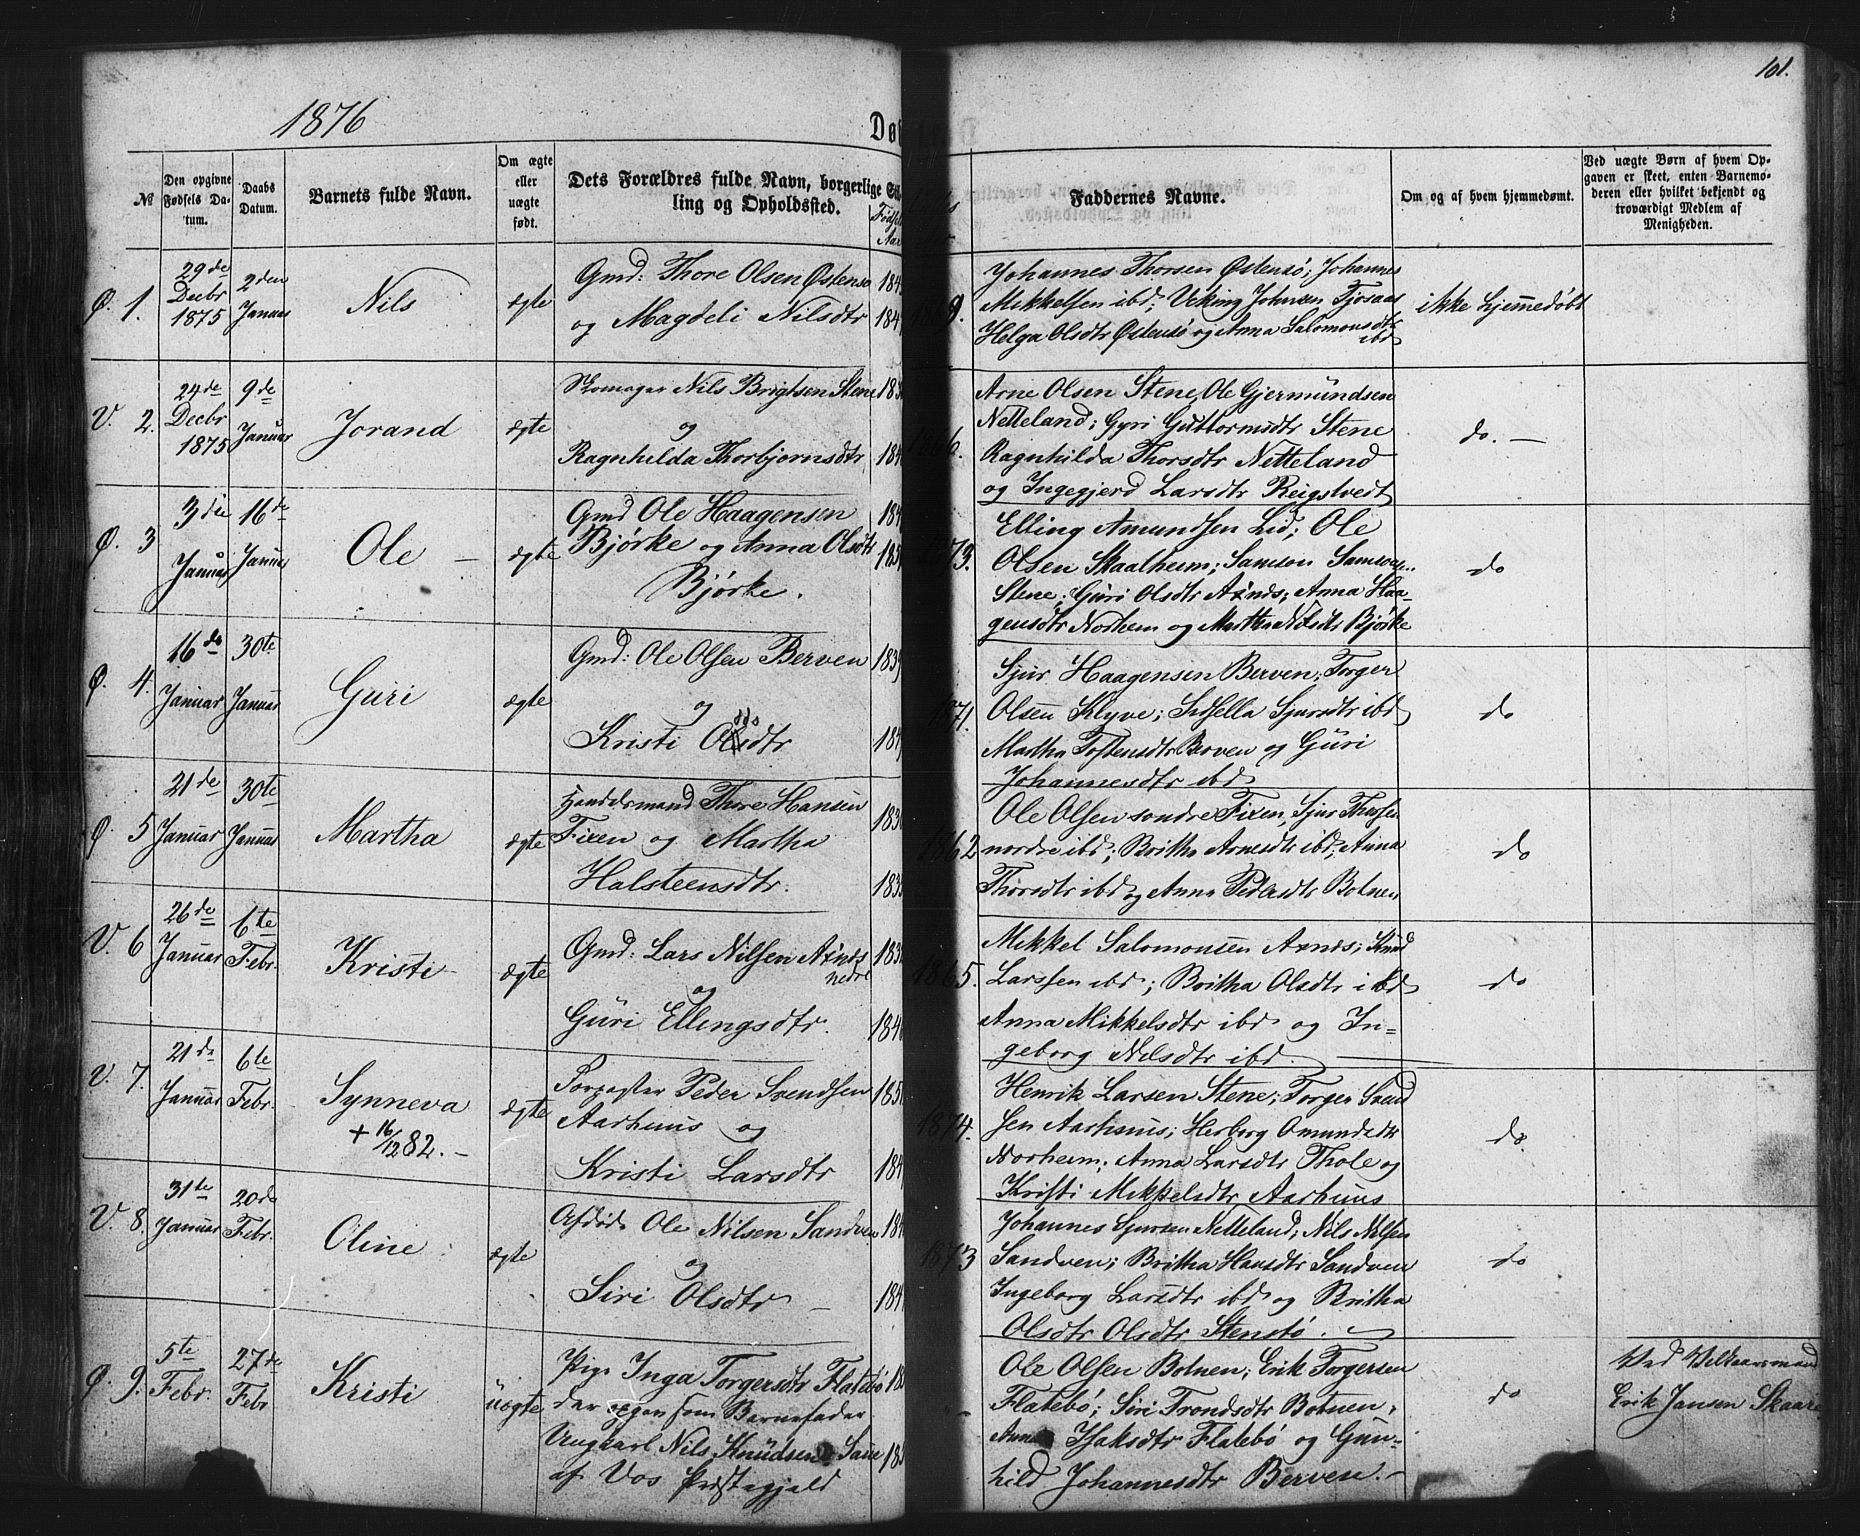 1876
101.
Dø
№
Den opgivne Fødsels Datum.
Daabs Datum.
Barnets fulde Navn.
Om ægte eller uægte født.
Dets Forældres fulde Navn, borgerlige Stilling og Opholdssted.
Fødsels Aar
Faddernes Navne.
Om og af hvem hjemmedøbt.
Ved uægte Børn af hvem Opgaven er skeet, enten Barnemøderen eller hvilket bekjendt og troværdigt Medlem af Menigheden.
Ø. 1.
29de Decbr 1875
2den Januar
Nils
ægte
Gmd: Thore Olsen Østensø
og Magdeli Nilsdtr
Johannes Thorsen Østensø; Johannes
Mikkelsen ibd; Veking Johnsen Tjosaas
Helga Olsdtr Østensø og Anna Salomonsdtr
ibd
ikke hjemmedøbt
V. 2.
24de Decbr 1875
9de Januar
Jorand
ægte
Skomager Nils Brigtsen Stene
og
Ragnhilda Thorbjornsdtr
1866.
Arne Olsen Stene, Ole Gjermundsen
Netteland; Gyri Guttormsdtr Stene
Ragnhilda Thorsdtr Netteland
og Ingegjerd Larsdtr Reigstvedt
do. —
Ø. 3
3die Januar
16de Januar
Ole —
ægte
Gmd Ole Haagensen
Bjørke og Anna Olsdtr
Bjørke.
1873.
Elling Amundsen Lid; Ole
Olsen Skaalheim; Samson Samsonsen
Stene; Guri Olsdtr Axnes; Anna Haa-
gensdtr Norheim og Martha Nilsdtr Bjørke
do
Ø. 4.
16de Januar
30te Januar
Guri
ægte
Gmd: Ole Olsen Berven
og
Kristi Olsdtr
1871.
Sjur Haagensen Berven; Torger
Olsen Klyve; Sidsella Sjursdtr ibd
Martha Tostensdtr Berven og Guri
Johannesdtr ibd
do
Ø. 5
21de Januar
30te Januar
Martha
ægte
Handelsmand Thore Hansen
Fixen og Martha
Halsteensdtr.
1862
Ole Olsen søndre Fixen, Sjur Thorsen
nordre ibd; Britha Arnesdtr ibd; Anna
Thorsdtr ibd og Anna Pedersdtr Botnen
do
V. 6
26de Januar
6te Febr.
Kristi
ægte
Gmd: Lars Nilsen Axnes
nedre
og
Guri Ellingsdtr.
1865.
Mikkel Salomonsen Axnes; Knud
Larssen ibd; Britha Olsdtr ibd
Anna Mikkelsdtr ibd og In-
geborg Nilsdtr ibd.
do
V. 7.
21de Januar
6te Febr.
Synneva
+ 16/12 82. —
ægte
Forpagter Peder Svendsen
Aarhuus og
Kristi Larsdtr
1874.
Henrik Larsen Stene; Torger Svend
sen Aarhuus; Herborg Omundsdtr
Norheim; Anna Larsdtr Thole og
Kristi Mikkelsdtr Aarhuus
do
V. 8.
31te Januar
20de Febr.
Oline
ægte
Afdøde Ole Nilsen Sandven
og
Siri Olsdtr —
1873
Johannes Sjursen Netteland; Nils Nilsen
Sandven; Britha Hansdtr Sandven
Ingeborg Larsdtr ibd og Britha
Olsdtr Olsdtr Stenstø.
do
Ø. 9.
5te Febr.
27de Febr
Kristi
uægte
Pige Inga Torgersdtr Flatebø
der opgav som Barnefader
Ungkarl Nils Knudsen Saue
af Vos Præstegjeld
Ole Olsen Botnen; Erik Torgersen
Flatebø; Siri Trondsdtr Botnen,
Anna Isaksdtr Flatebø og Gun-
hild Johannesdtr Berven. —
do
Ved Velkaarsmand
Erik Jansen Skaare